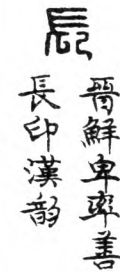 長
晉鮮卑率善
長印漢韵